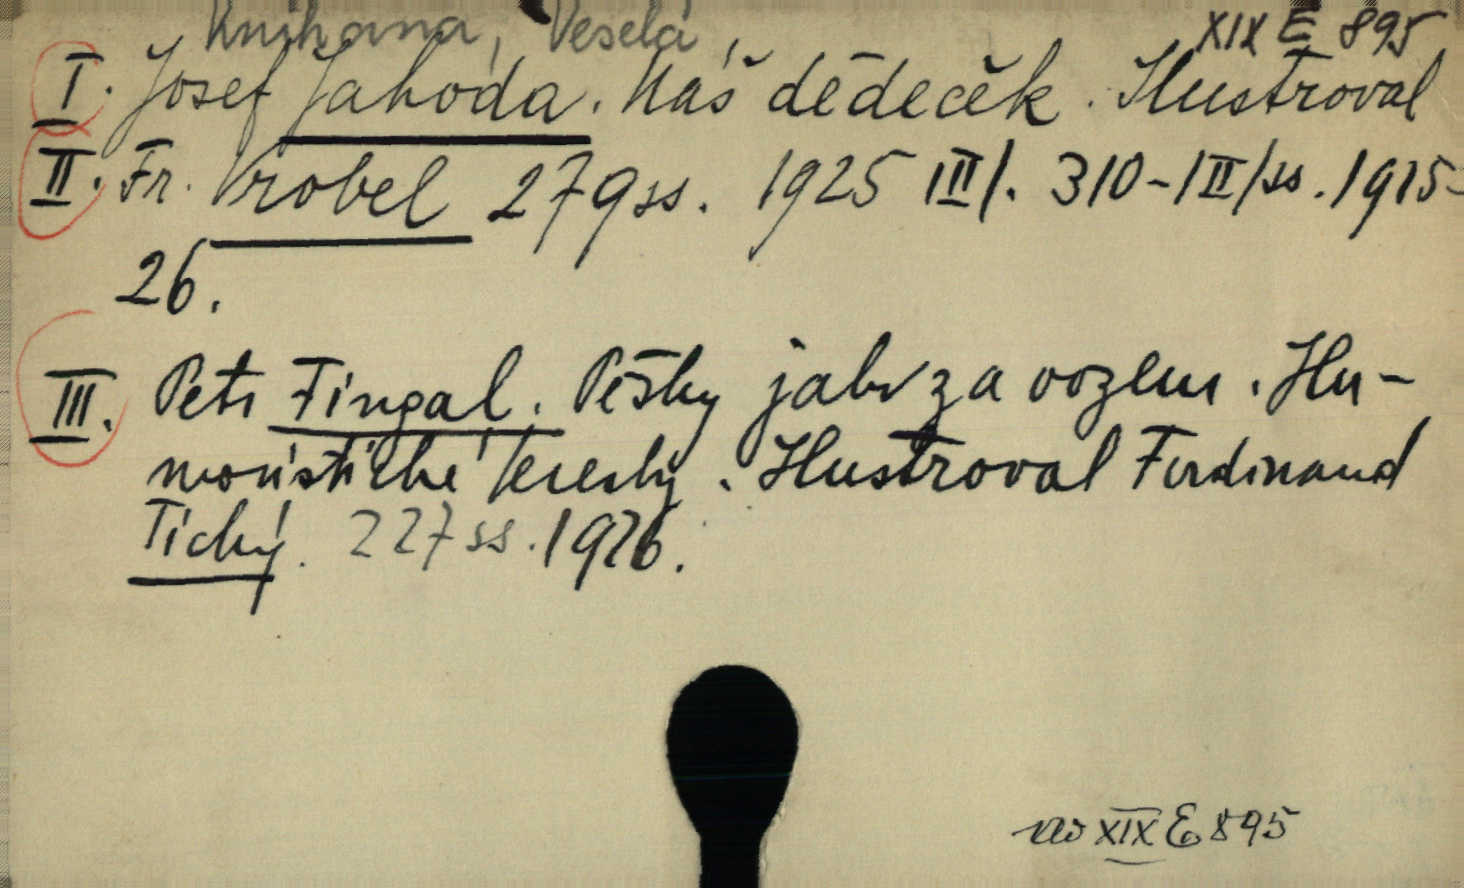 Knihovna, Veselá
XIX E 895
I. Josef Jahoda. Náš dědeček. Ilustroval
II. Fr. Vrobel 279 ss. 1925 |III|. 310-|II|ss. 1925-
26.
III. Petr Fingal. Pěšky jako za vozem. Hu-
moristické kresby. Ilustroval Ferdinand
Tichý. 227 ss. 1926.
XIX E 895